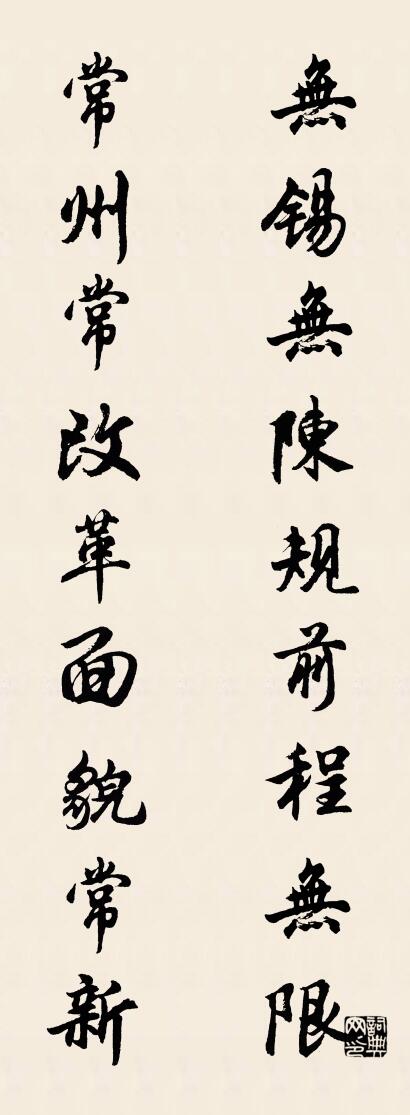 無錫無陳規前程無限
常州常改革面貌常新
詞典网印